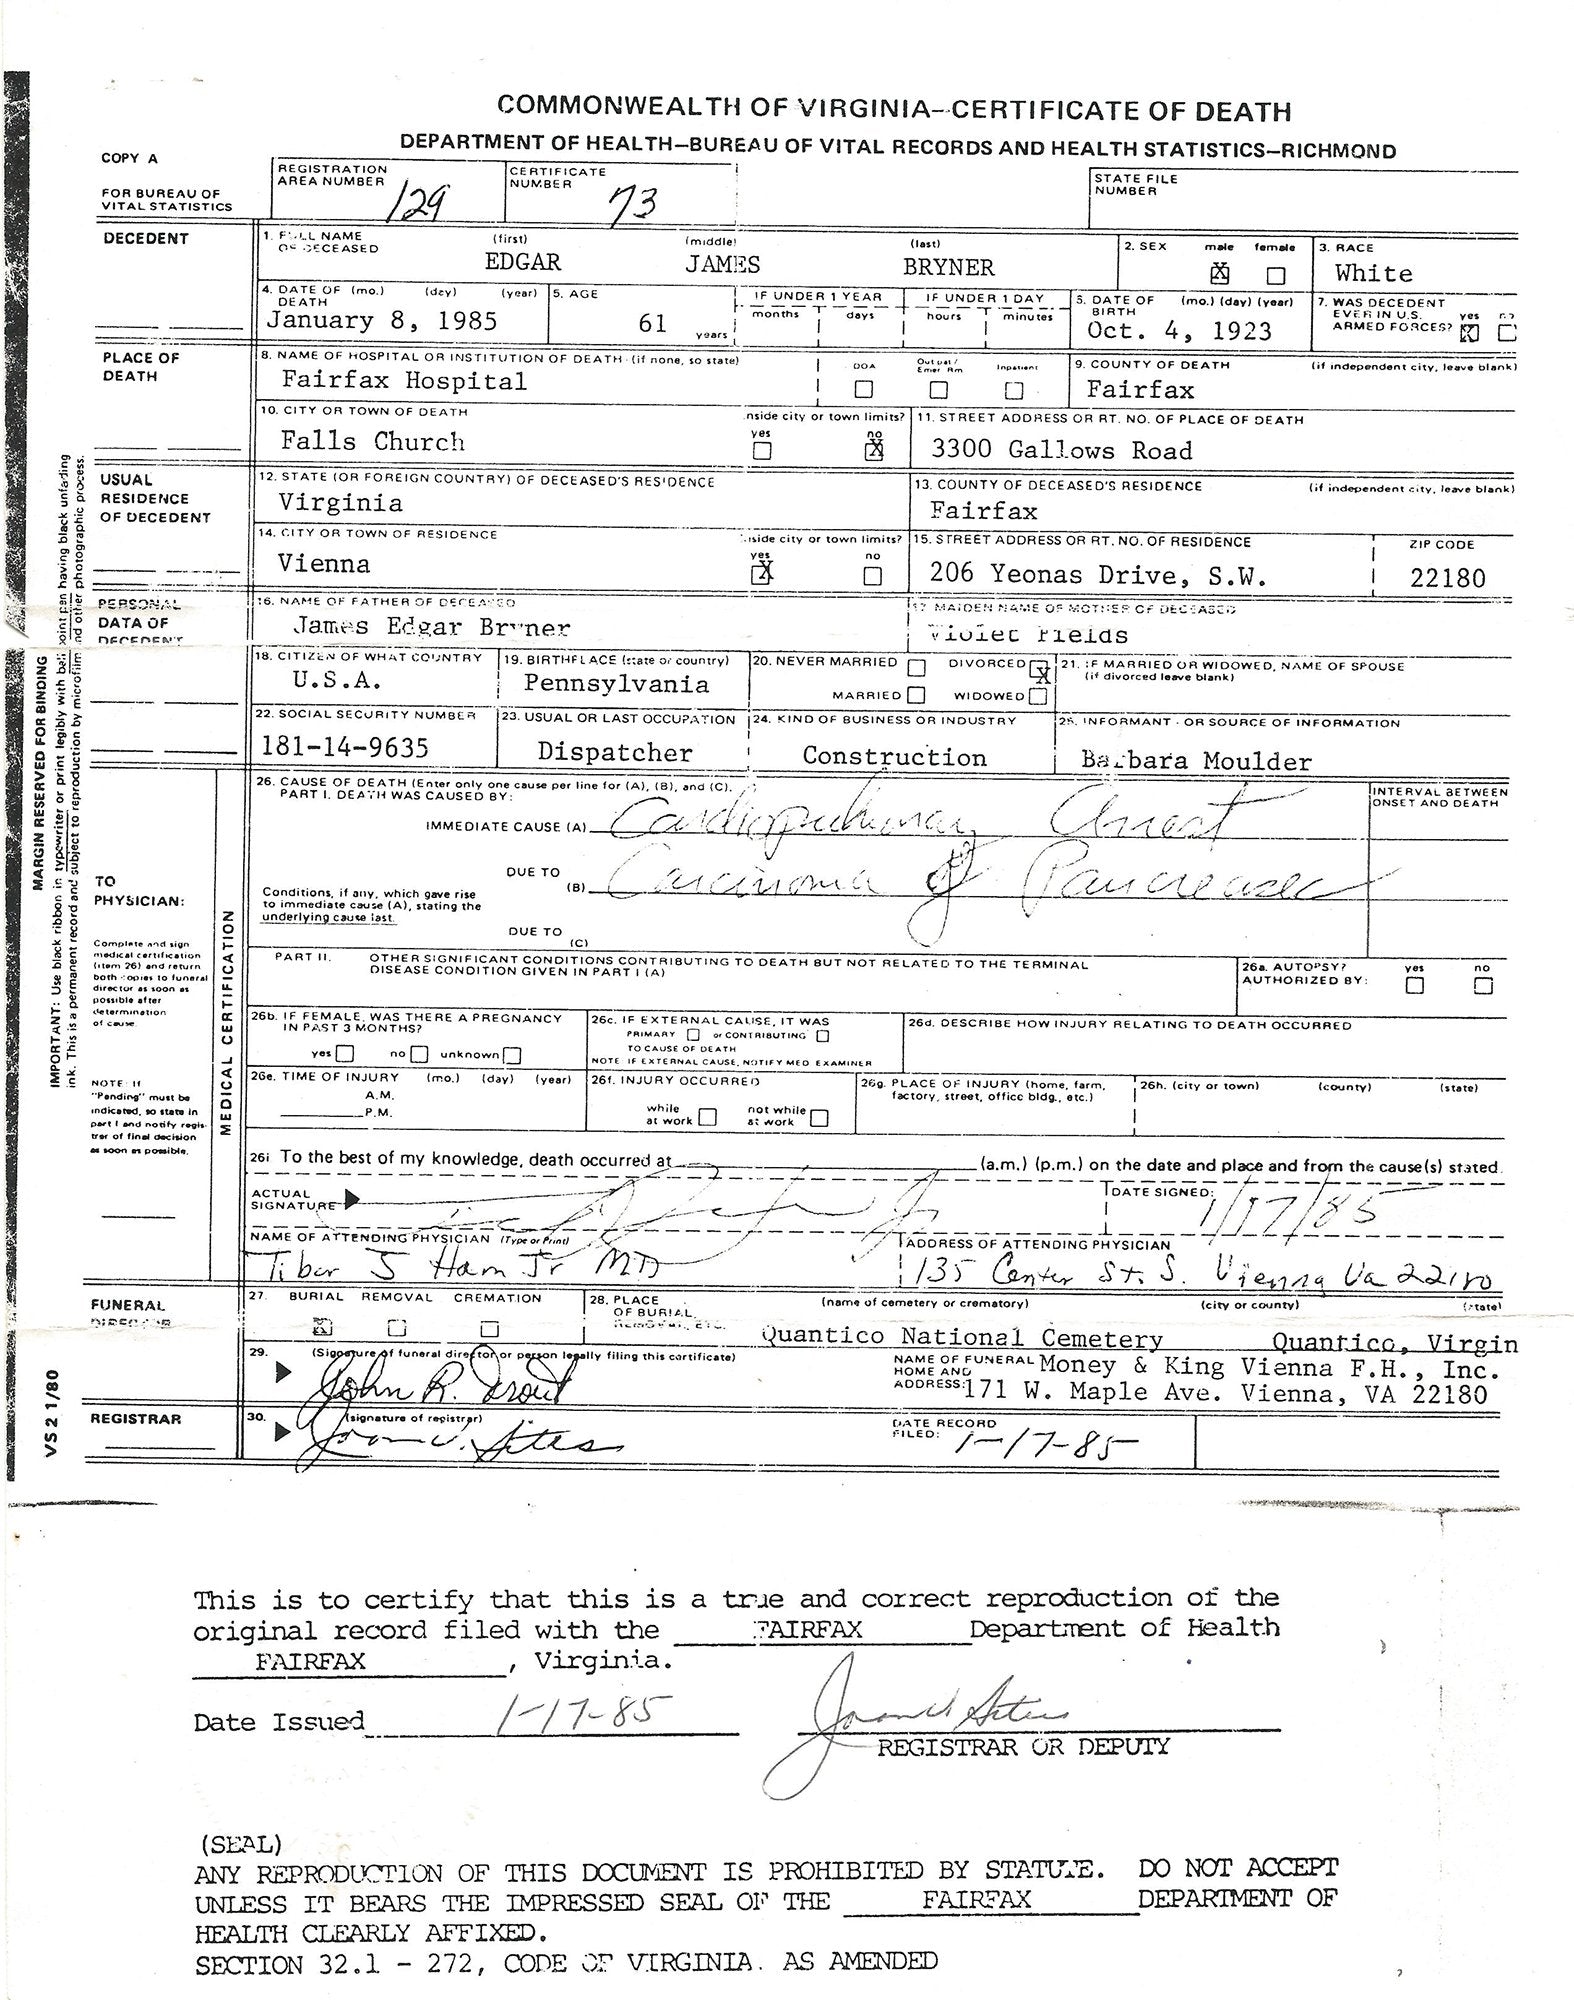 COMMONWEALTH OF VIRGINIA—CERTIFICATE OF DEATH
DEPARTMENT OF HEALTH—BUREAU OF VITAL RECORDS AND HEALTH STATISTICS—RICHMOND
COPY A
FOR BUREAU OF VITAL STATISTICS
REGISTRATION AREA NUMBER 129
CERTIFICATE NUMBER 73
STATE FILE NUMBER
DECEDENT
1. FULL NAME OF DECEASED (first) EDGAR (middle) JAMES (last) BRYNER
2. SEX male X female
3. RACE White
4. DATE OF DEATH (mo.) (day) (year) January 8, 1985
5. AGE 61 years
IF UNDER 1 YEAR months days
IF UNDER 1 DAY hours minutes
6. DATE OF BIRTH (mo.) (day) (year) Oct. 4, 1923
7. WAS DECEDENT EVER IN U.S. ARMED FORCES? yes X no
PLACE OF DEATH
8. NAME OF HOSPITAL OR INSTITUTION OF DEATH (if none, so state) Fairfax Hospital
DOA Outpat/ Emer Rm Inpatient
9. COUNTY OF DEATH (if independent city, leave blank) Fairfax
10. CITY OR TOWN OF DEATH Falls Church
inside city or town limits? yes no X
11. STREET ADDRESS OR RT. NO. OF PLACE OF DEATH 3300 Gallows Road
USUAL RESIDENCE OF DECEDENT
12. STATE (OR FOREIGN COUNTRY) OF DECEASED'S RESIDENCE Virginia
13. COUNTY OF DECEASED'S RESIDENCE (if independent city, leave blank) Fairfax
14. CITY OR TOWN OF RESIDENCE Vienna
inside city or town limits? yes X no
15. STREET ADDRESS OR RT. NO. OF RESIDENCE 206 Yeonas Drive, S.W.
ZIP CODE 22180
PERSONAL DATA OF DECEDENT
16. NAME OF FATHER OF DECEASED James Edgar Bryner
17. MAIDEN NAME OF MOTHER OF DECEASED Violet Fields
18. CITIZEN OF WHAT COUNTRY U.S.A.
19. BIRTHPLACE (state or country) Pennsylvania
20. NEVER MARRIED DIVORCED X
MARRIED WIDOWED
21. IF MARRIED OR WIDOWED, NAME OF SPOUSE (if divorced leave blank)
22. SOCIAL SECURITY NUMBER 181-14-9635
23. USUAL OR LAST OCCUPATION Dispatcher
24. KIND OF BUSINESS OR INDUSTRY Construction
25. INFORMANT - OR SOURCE OF INFORMATION Barbara Moulder
TO PHYSICIAN:
Complete and sign medical certification (item 26) and return both copies to funeral director as soon as possible after determination of cause.
NOTE: If "Pending" must be indicated, so state in part I and notify registrar of final decision as soon as possible.
MEDICAL CERTIFICATION
26. CAUSE OF DEATH (Enter only one cause per line for (A), (B), and (C).
PART I. DEATH WAS CAUSED BY:
INTERVAL BETWEEN ONSET AND DEATH
IMMEDIATE CAUSE (A) Cardiopulmonary Arrest
DUE TO (B) Carcinoma of Pancreases
Conditions, if any, which gave rise to immediate cause (A), stating the underlying cause last.
DUE TO (C)
PART II. OTHER SIGNIFICANT CONDITIONS CONTRIBUTING TO DEATH BUT NOT RELATED TO THE TERMINAL DISEASE CONDITION GIVEN IN PART I (A)
26a. AUTOPSY? AUTHORIZED BY: yes no
26b. IF FEMALE, WAS THERE A PREGNANCY IN PAST 3 MONTHS? yes no unknown
26c. IF EXTERNAL CAUSE, IT WAS PRIMARY or CONTRIBUTING TO CAUSE OF DEATH
NOTE: IF EXTERNAL CAUSE, NOTIFY MED EXAMINER
26d. DESCRIBE HOW INJURY RELATING TO DEATH OCCURRED
26e. TIME OF INJURY (mo.) (day) (year) A.M. P.M.
26f. INJURY OCCURRED while at work not while at work
26g. PLACE OF INJURY (home, farm, factory, street, office bldg., etc.)
26h. (city or town) (county) (state)
26i To the best of my knowledge, death occurred at (a.m.) (p.m.) on the date and place and from the cause(s) stated.
ACTUAL SIGNATURE
DATE SIGNED: 1/17/85
NAME OF ATTENDING PHYSICIAN (Type or Print) Tibor J Ham Jr MD
ADDRESS OF ATTENDING PHYSICIAN 135 Center St. S. Vienna Va 22180
FUNERAL DIRECTOR
27. BURIAL X REMOVAL CREMATION
28. PLACE OF BURIAL, REMOVAL, ETC. (name of cemetery or crematory) (city or county) (state)
Quantico National Cemetery Quantico, Virgin
29. (Signature of funeral director or person legally filing this certificate) John R. Trout
NAME OF FUNERAL HOME AND ADDRESS: Money & King Vienna F.H., Inc.
171 W. Maple Ave. Vienna, VA 22180
REGISTRAR
30. (signature of registrar) Joan V. Sites
DATE RECORD FILED: 1-17-85
MARGIN RESERVED FOR BINDING
IMPORTANT: Use black ribbon in typewriter or print legibly with ball point pen having black unfading
ink. This is a permanent record and subject to reproduction by microfilm and other photographic process.
VS 2 1/80
This is to certify that this is a true and correct reproduction of the
original record filed with the FAIRFAX Department of Health
FAIRFAX, Virginia.
Date Issued 1-17-85 Joan V. Sites
REGISTRAR OR DEPUTY
(SEAL)
ANY REPRODUCTION OF THIS DOCUMENT IS PROHIBITED BY STATUTE. DO NOT ACCEPT
UNLESS IT BEARS THE IMPRESSED SEAL OF THE FAIRFAX DEPARTMENT OF
HEALTH CLEARLY AFFIXED.
SECTION 32.1 - 272, CODE OF VIRGINIA. AS AMENDED